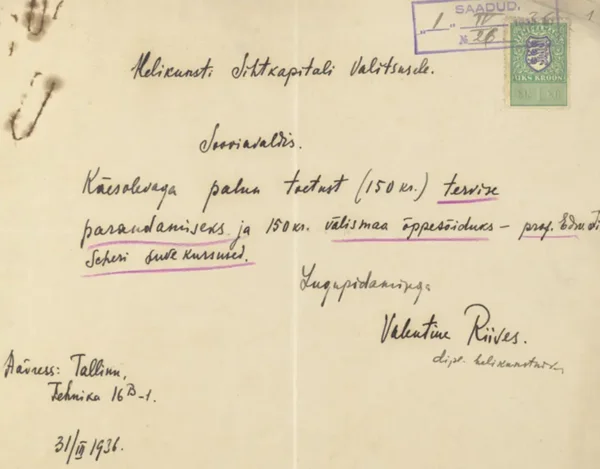 SAADUD.
"1" IV 36
№ 26
1
ÜKS KROON
Helikunsti Sihtkapitali Valitsusele.
Sooviavaldis.
Käesolevaga palun toetust (150 kr.) tervise
parandamiseks ja 150 kr. välismaa õppesõiduks – prof.
Scheri suve kursused.
Lugupidamisega
Valentine Riives.
dipl. helikunstnik
Aadress: Tallinn,
Tehnika 16B-1.
31/III 1936.